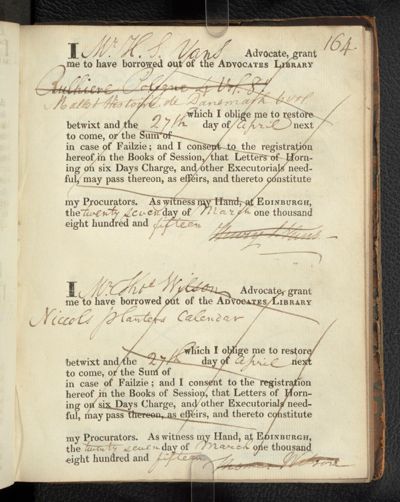 164
I Mr H. S. Vans Advocate, grant
me to have borrowed out of the ADVOCATES LIBRARY
Rulhiere Pologne 4 Vol. 8º
Mallet Histoire de Danemark 6 vol
which I oblige me to restore
betwixt and the 27th day of April next
to come, or the Sum of
in case of Failzie; and I consent to the registration
hereof in the Books of Session, that Letters of Horn-
ing on six Days Charge, and other Executorials need-
ful, may pass thereon, as effeirs, and thereto constitute
my Procurators. As witness my Hand, at EDINBURGH,
the twenty seven day of March one thousand
eight hundred and fifteen
Henry S Vans
I Mr Thos Wilson Advocate, grant
me to have borrowed out of the ADVOCATES LIBRARY
Niccols planters Calendar
which I oblige me to restore
betwixt and the 27th day of April next
to come, or the Sum of
in case of Failzie; and I consent to the registration
hereof in the Books of Session, that Letters of Horn-
ing on six Days Charge, and other Executorials need-
ful, may pass thereon, as effeirs, and thereto constitute
my Procurators. As witness my Hand, at EDINBURGH,
the twenty seven day of March one thousand
eight hundred and fifteen Thomas Wilson